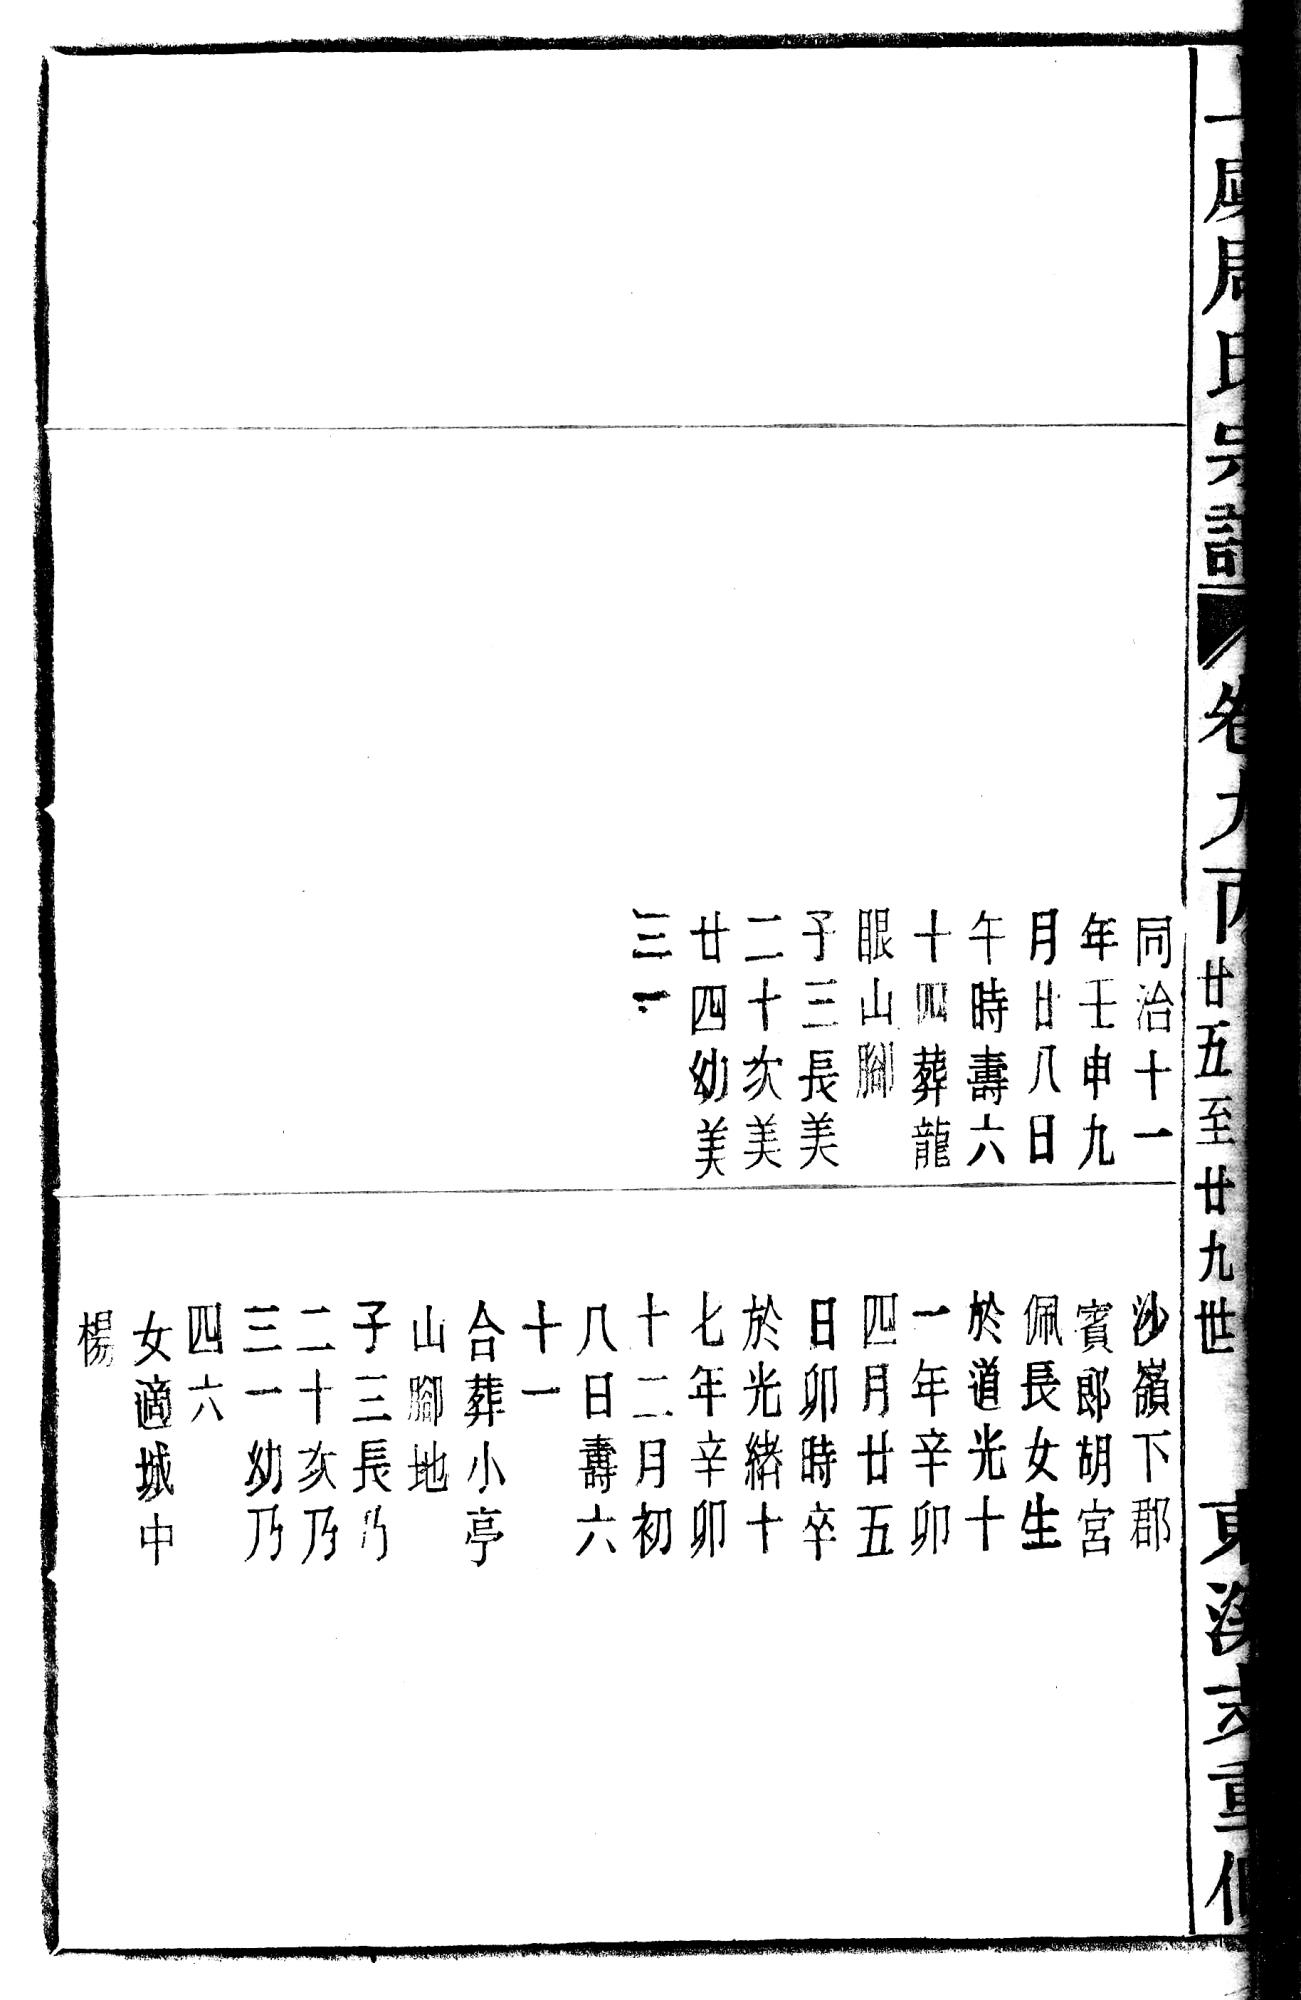 周氏宗譜
卷九丙
廿五至廿九世
重修
同治十一
年壬申九
月廿八日
午時壽六
十四葬龍
眼山腳
子三長美
二十次美
廿四幼美
三一
沙嶺下郡
賓郎胡宮
佩長女生
於道光十
一年辛卯
四月廿五
日卯時卒
於光緒十
七年辛卯
十二月初
八日壽六
十一
合葬小亭
山腳地
子三長乃
二十次乃
三一幼乃
四六
女適城中
楊